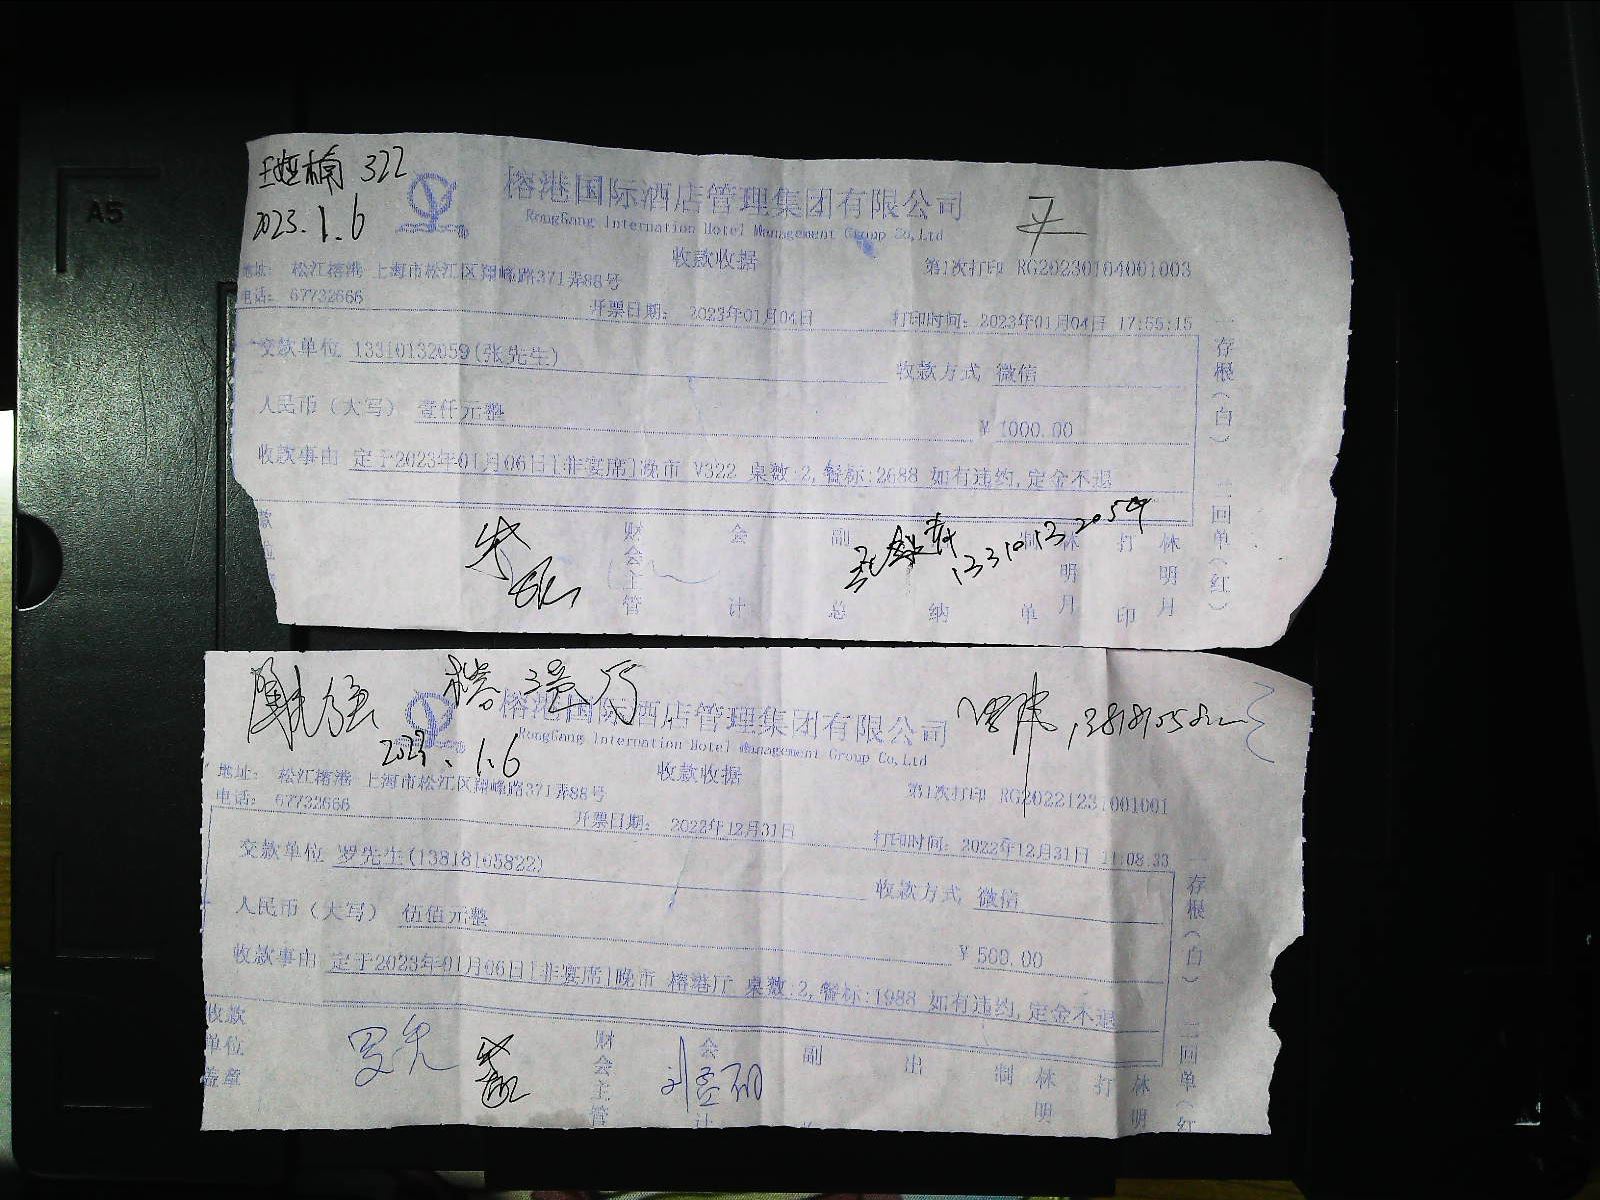 A5
322
2023.1.6
榕港国际酒店管理集团有限公司
RongGang Internation Hotel Management Group Co,Ltd
收款收据
第1次打印 RG20230104001003
地址: 松江榕港 上海市松江区翔峰路371弄88号
电话: 67732666
开票日期: 2023年01月04日
打印时间: 2023年01月04日 17:55:15
交款单位 13310132059(张先生)
收款方式 微信
人民币(大写) 壹仟元整
¥ 1000.00
收款事由 定于2023年01月06日[非宴席]晚市 V322 桌数:2,餐标:2688 如有违约,定金不退
存根(白) 二回单(红)
财会主管
会计
副总
纳
制单
林明月
打印
林明月
13310132059
2023.1.6
榕港国际酒店管理集团有限公司
RongGang Internation Hotel Management Group Co,Ltd
收款收据
第1次打印 RG20221231001001
地址: 松江榕港 上海市松江区翔峰路371弄88号
电话: 67732666
开票日期: 2022年12月31日
打印时间: 2022年12月31日 11:08:33
交款单位 罗先生(13818105822)
收款方式 微信
人民币(大写) 伍佰元整
¥ 500.00
收款事由 定于2023年01月06日[非宴席]晚市 榕港厅 桌数:2,餐标:1988 如有违约,定金不退
存根(白) 二回单(红
收款单位盖章
财会主管
会计
副
出
制
林明
打
林明